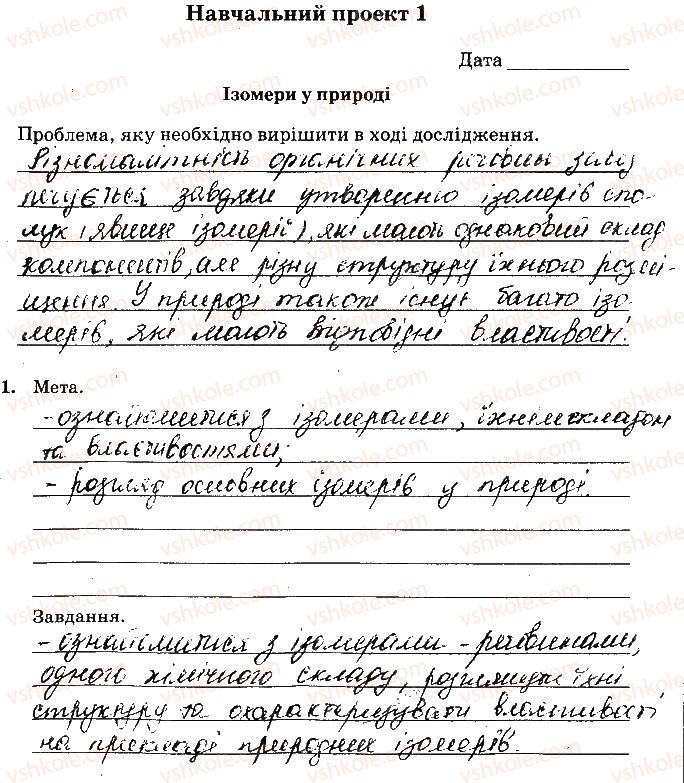 Навчальний проект 1
Дата
Ізомери у природі
Проблема, яку необхідно вирішити в ході дослідження.
Різноманітність органічних речовин
завдяки утворенню ізомерів спо-
лук (явище ізомерії), які мають однаковий склад
компонентів, але різну структуру їхнього розмі-
щення. У природі також існує багато ізо-
мерів, які мають відповідні властивості.
1. Мета.
- ознайомитися з ізомерами, їхнім складом
та властивостями;
- розгляд основних ізомерів у природі.
Завдання.
- ознайомитися з ізомерами - речовинами,
одного хімічного складу, розглянути їхні
структуру та охарактеризувати властивості
на прикладі природних ізомерів.